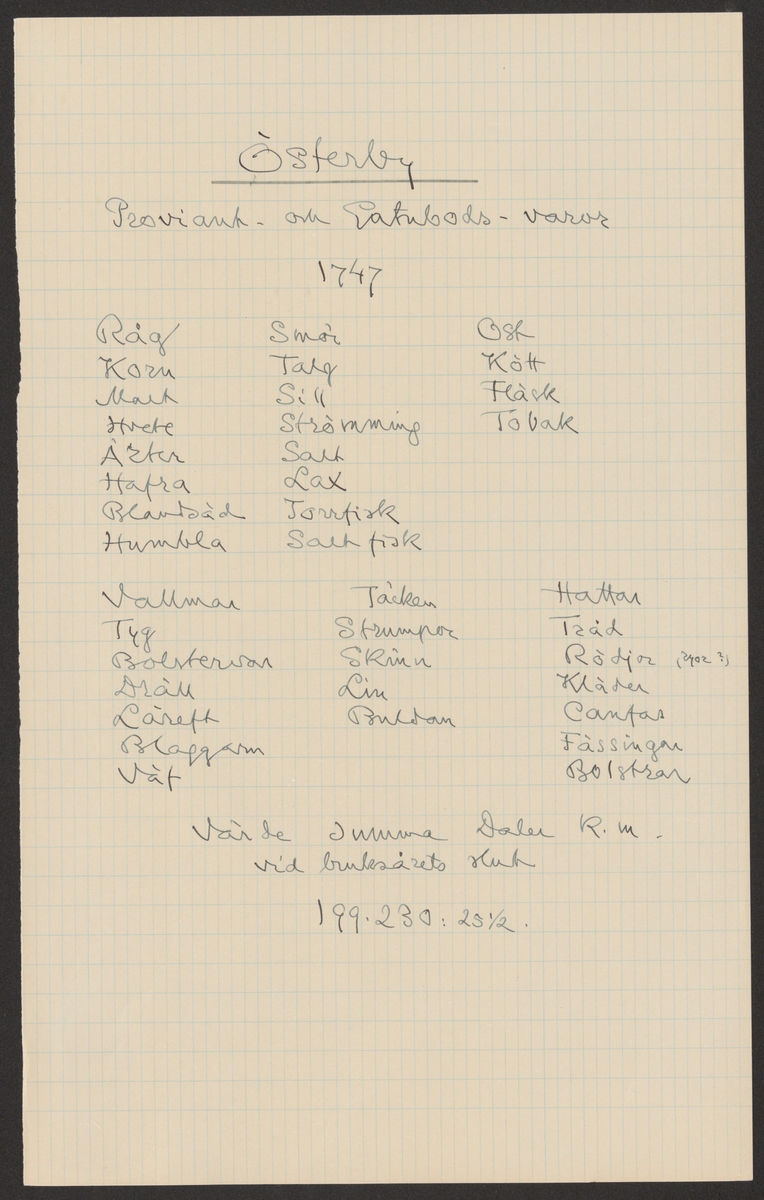 Österby
Proviant- och Gatubods-varor
1747
Råg Smör Ost
Korn Talg Kött
Malt Sill Fläsk
Hvete Strömming Tobak
Ärter Salt
Hafra Lax
Blandsäd Torrfisk
Humbla Salt fisk
Vallmar Täcken Hattar
Tyg Strumpor Tråd
Bolstervar Skinn Rödjor
Dräll Lin Kläder
Läreft Buldan Canfas
Blaggarn Fässingar
Väf Bolstrar
Värde Summa Daler K.m.
vid bruksårets slut
199.230: 25 1/2.